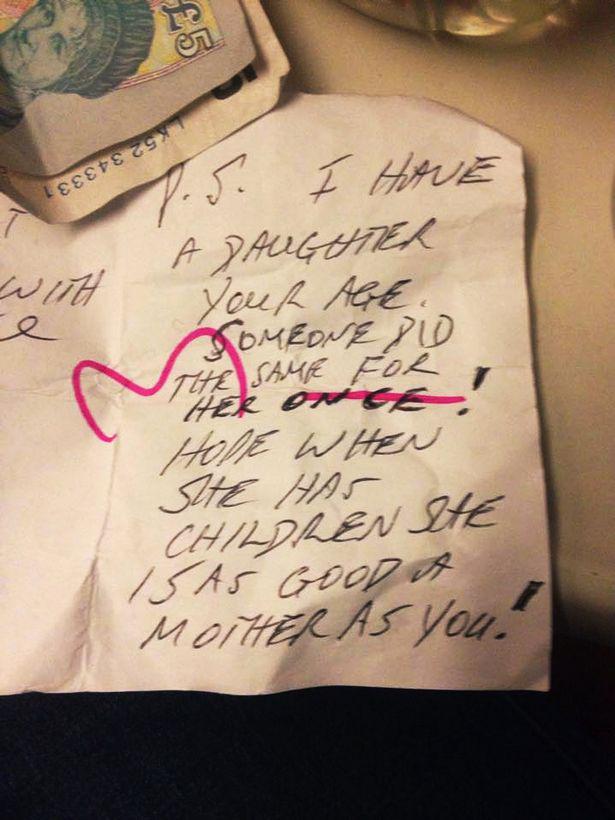 £5
5
LK52 343331
T
WITH
P.S. I HAVE
A DAUGHTER
YOUR AGE.
SOMEONE DID
THE SAME FOR
HER ONCE!
HOPE WHEN
SHE HAS
CHILDREN SHE
IS AS GOOD A
MOTHER AS YOU.!